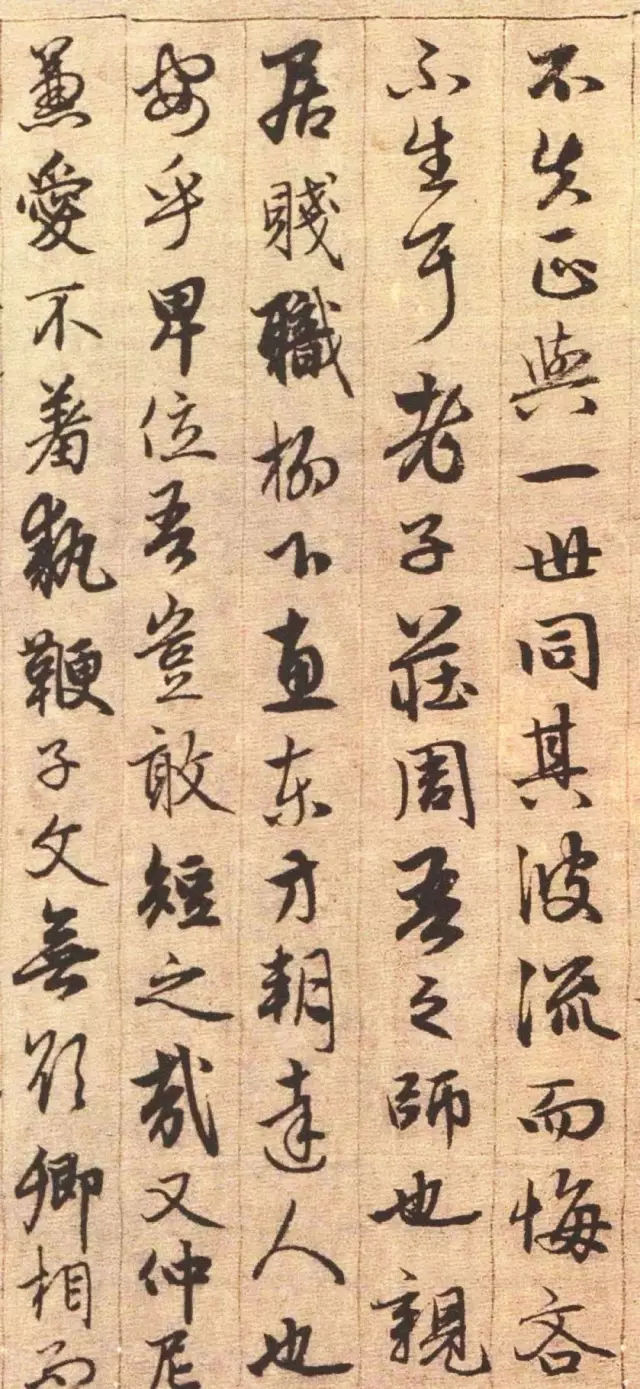 不失正與一世同其波流而悔吝
不生耳老子莊周吾之師也親
居賤職柳下惠東方朔達人也
安乎卑位吾豈敢短之哉又仲尼
兼愛不羞執鞭子文無欲卿相而